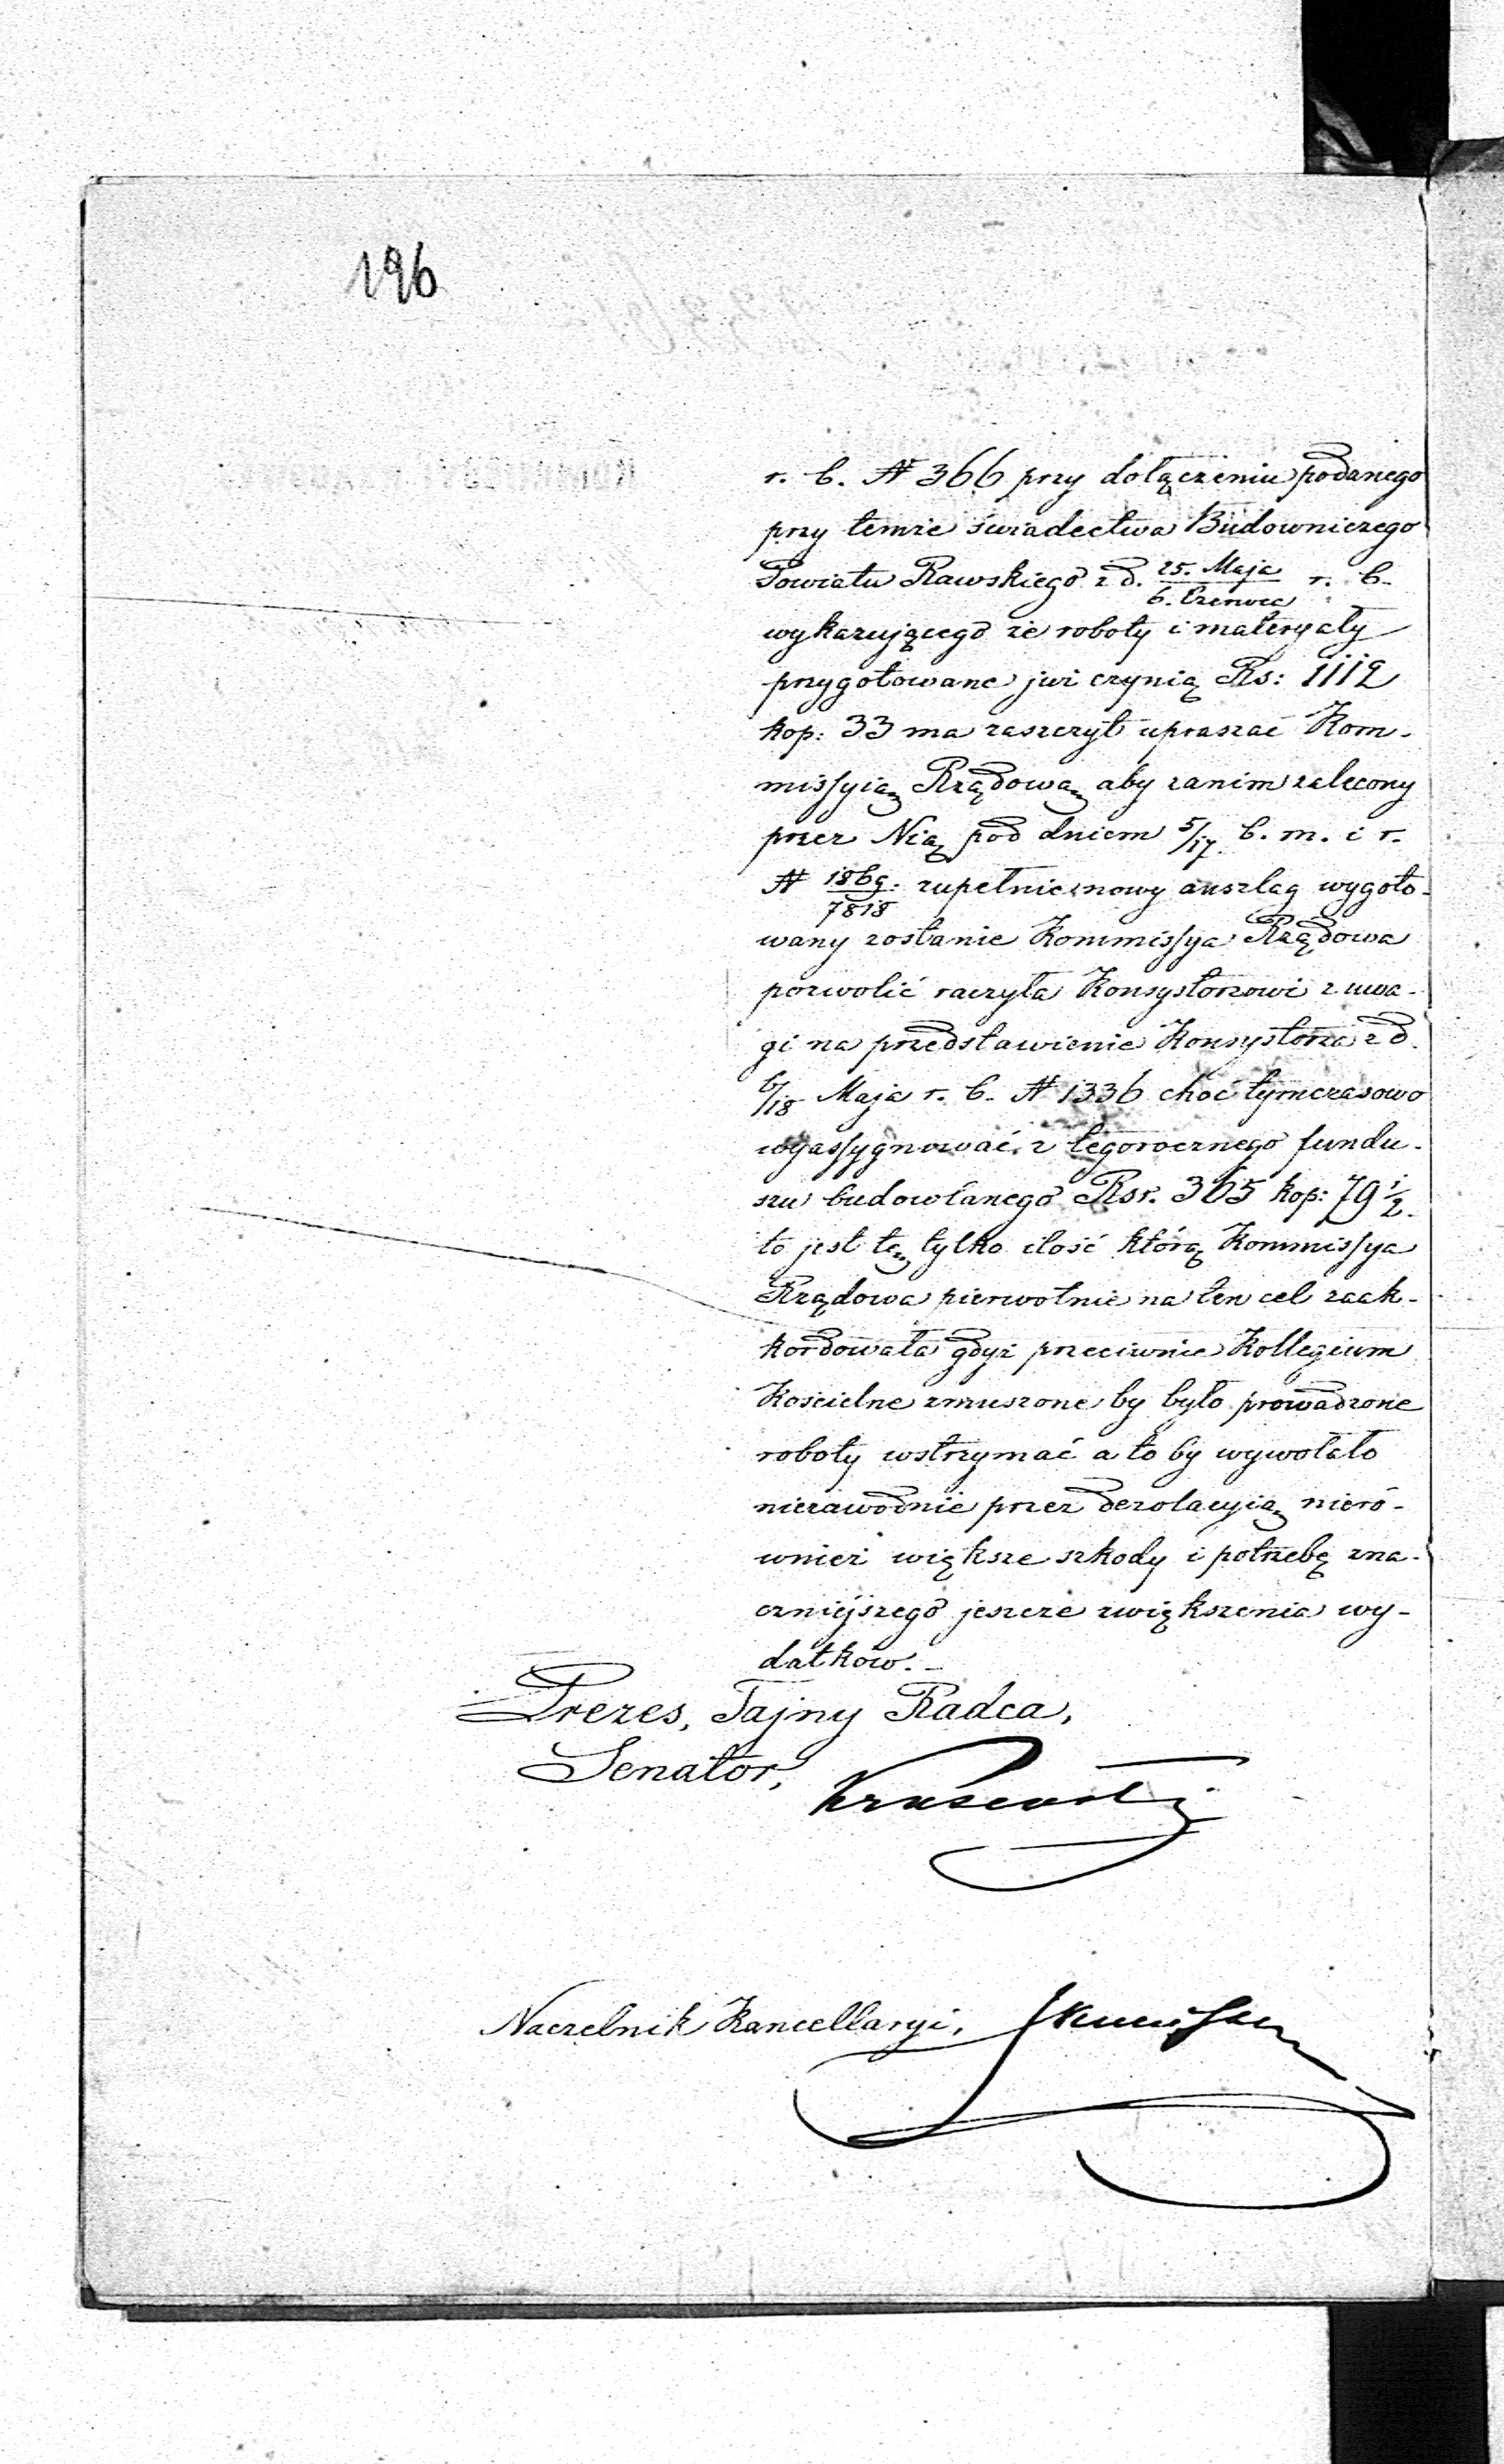 196
r. b. № 366 przy dołączeniu podanego
przy temże świadectwa Budowniczego
Powiatu Rawskiego z d. 25. Maja / 6. Czerwca r. b.
wykazującego że roboty i materyały
przygotowane już czynią Rs: 1112
kop: 33 ma zaszczyt upraszać Kom-
missyią Rządową aby zanim zalecony
przez Nią pod dniem 5/17 b. m. i r.
№ 1869/7818 zupełnie nowy anszlag wygoto-
wany zostanie Kommissya Rządowa
pozwolić raczyła Konsystorzowi z uwa-
gi na przedstawienie Konsystorza z d.
6/18 Maja r. b. № 1336 choć tymczasowo
wyassygnować z tegorocznego fundu-
szu budowlanego Rsr. 365 kop: 79 ½.
to jest tę tylko ilość którą Kommissya
Rządowa pierwotnie na ten cel zaak-
kordowała gdyż przeciwnie Kollegium
Kościelne zmuszone by było prowadzone
roboty wstrzymać a to by wywołało
niezawodnie przez dezolacyią nieró-
wnież większe szkody i potrzebę zna-
czniejszego jeszcze zwiększenia wy-
datków. -
Prezes, Tajny Radca,
Senator,
Naczelnik Kancellaryi,